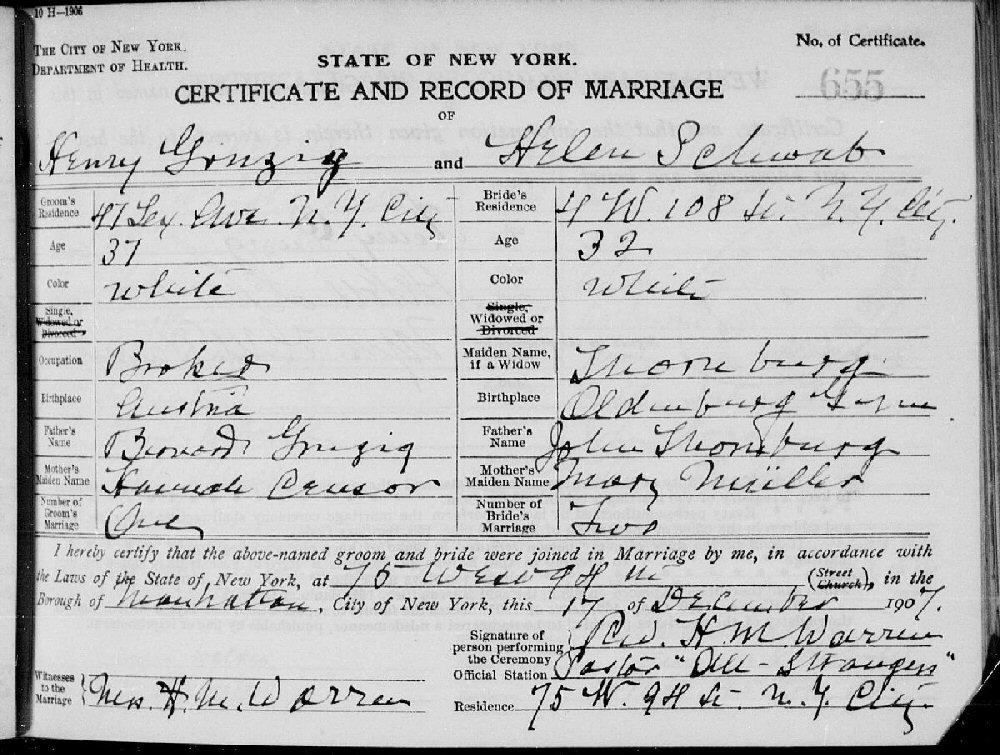 10 H—1906
THE CITY OF NEW YORK.
DEPARTMENT OF HEALTH.
No. of Certificate.
655
STATE OF NEW YORK.
CERTIFICATE AND RECORD OF MARRIAGE
OF
Henry and Helen Schwab
Groom's Residence 41 Lex. Ave N. Y. City
Bride's Residence 4 W. 108 St. N. Y. City.
Age 37
Age 32
Color White
Color White
Single, Widowed or Divorced
Single, Widowed or Divorced
Occupation Broker
Maiden Name, if a Widow Thornburg
Birthplace Austria
Birthplace Oldenburg
Father's Name
Father's Name John Thornburg
Mother's Maiden Name Hannah
Mother's Maiden Name Mary Müller
Number of Groom's Marriage One
Number of Bride's Marriage Two
I hereby certify that the above-named groom and bride were joined in Marriage by me, in accordance with
the Laws of the State of New York, at 75 West 94 St (Street Church), in the
Borough of Manhattan, City of New York, this 17 of December 1907.
Signature of person performing the Ceremony Rev. H M Warren
Official Station Pastor "All - Strangers"
Witnesses to the Marriage Mrs. H. M. Warren
Residence 75 W. 94 St. N. Y. City